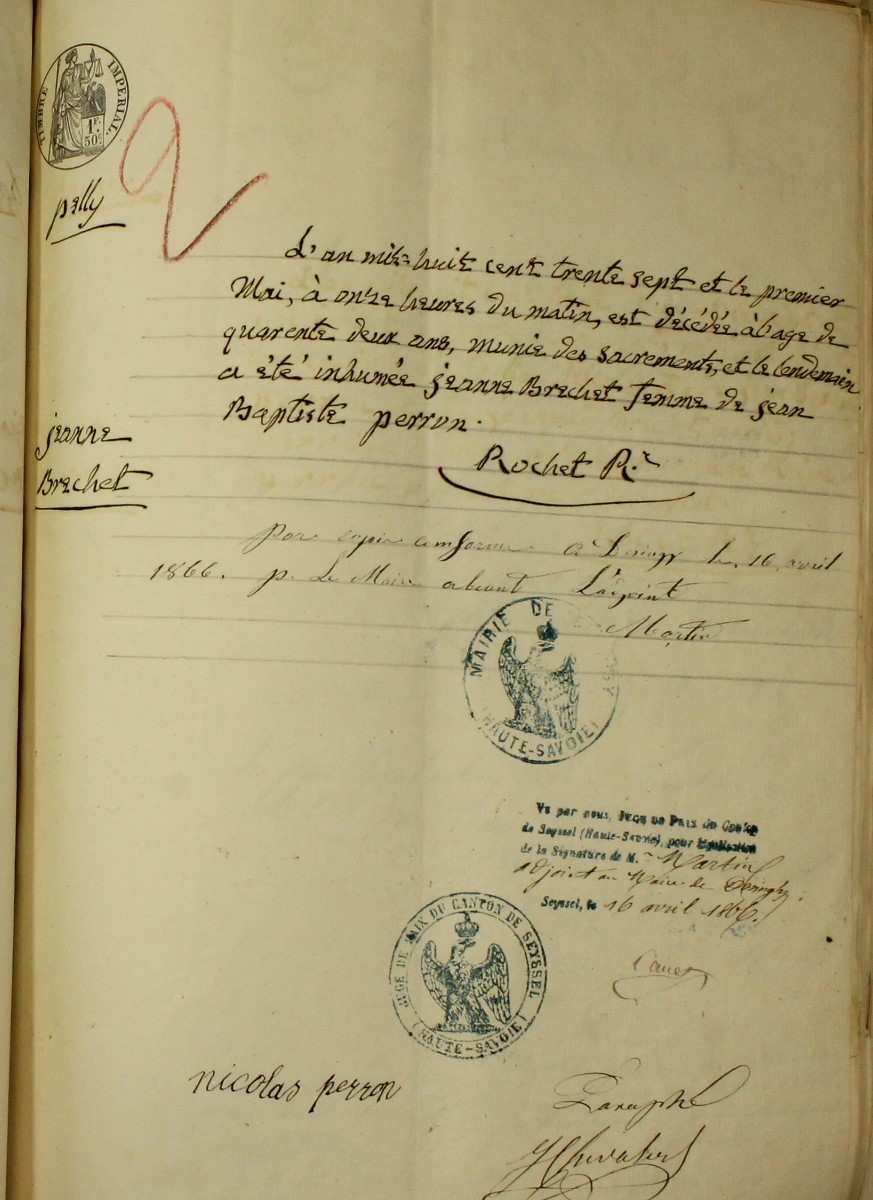 TIMBRE IMPERIAL
1F. 50c
2
pelly
L'an mile huit cent trente sept et le premier
Mai, à onze heures du matin, est décédée à l'age de
quarente deux ans, munie des sacrements, et le lendemain
a été inhumée jeanne Brechet femme de jean
Baptiste perron.
jeanne
Brechet
Rochet R.r
par copie conforme à Desingy le 16 avril
1866. p. Le Maire absent L'adjoint
Martin
MAIRIE DE
(HAUTE-SAVOIE)
Vu par nous, JUGE DE PAIX DU Canton
de Seyssel (Haute-Savoie), pour légalisation
de la Signature de M.r Martin
adjoint au Maire de Desingy.
Seyssel, le 16 avril 1866.
JUGE DE PAIX DU CANTON DE SEYSSEL
(HAUTE-SAVOIE)
nicolas perron
Paraphé